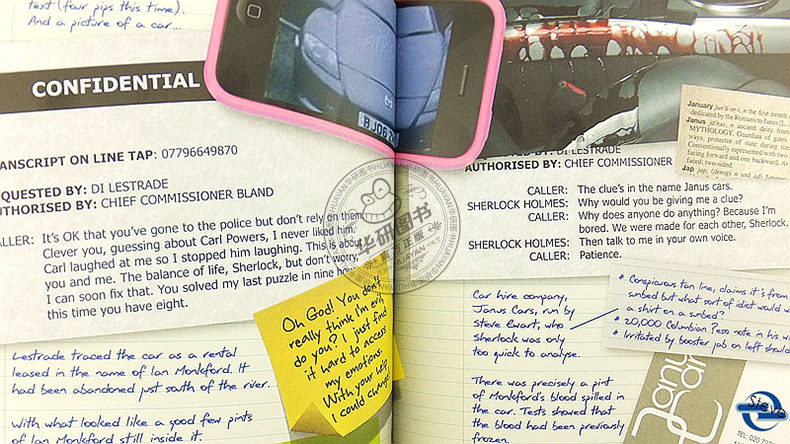 text (four pips this time).
And a picture of a car...
CONFIDENTIAL
TRANSCRIPT ON LINE TAP: 07796649870
REQUESTED BY: DI LESTRADE
AUTHORISED BY: CHIEF COMMISSIONER BLAND
CALLER: It's OK that you've gone to the police but don't rely on them.
Clever you, guessing about Carl Powers, I never liked him.
Carl laughed at me so I stopped him laughing. This is about
you and me. The balance of life, Sherlock, but don't worry,
I can soon fix that. You solved my last puzzle in nine
this time you have eight.
Oh God! You don't
really think I'm evil,
do you? I just find
it hard to access
my emotions.
With your help,
I could change
Lestrade traced the car as a rental
leased in the name of Ian Monkford. It
had been abandoned just south of the river.
With what looked like a good few pints
of Ian Monkford still inside it.
BJ06
January jan'û-ər-i, n the first month
dedicated by the Romans to Janus (L.
Janus jā'nəs, n ancient deity
MYTHOLOGY. Guardian of gates
ways, protector of state during
Conventionally represented with two
facing forward and one backward. As
faced; two-sided.
Jap jap, (derog) n and adj
AUTHORISED BY: CHIEF COMMISSIONER
CALLER: The clue's in the name Janus cars.
SHERLOCK HOLMES: Why would you be giving me a clue?
CALLER: Why does anyone do anything? Because I'm
bored. We were made for each other, Sherlock.
SHERLOCK HOLMES: Then talk to me in your own voice.
CALLER: Patience.
Car hire company,
Janus Cars, run by
Steve Ewart, who
Sherlock was only
too quick to analyse.
* Conspicuous tan line, claims it's from
sunbed but what sort of idiot would
a shirt on a sunbed?
* 20,000 Columbian Peso note in his
* Irritated by booster jab on left
There was precisely a pint
of Monkford's blood spilled in
the car. Tests showed that
the blood had been previously
frozen.
Janus
car
Steve
TEL: 020
华研图书
HUAYAN华研图书